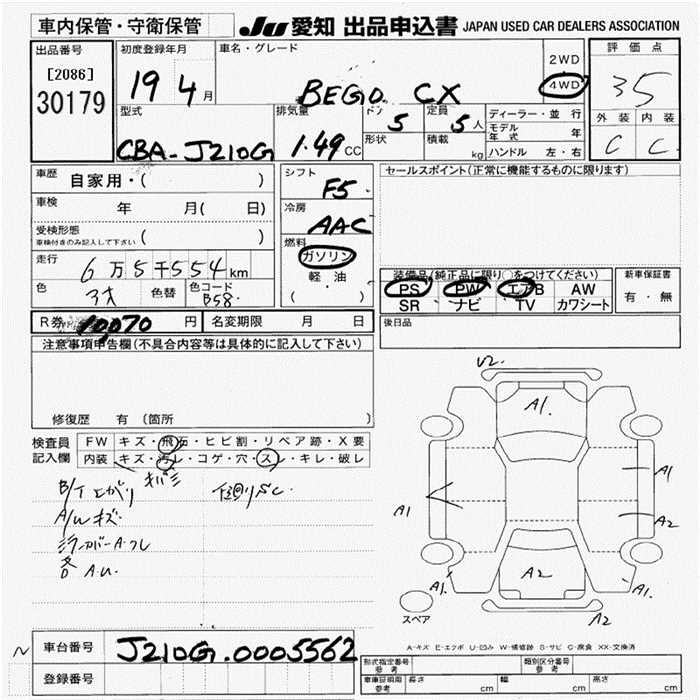 車内保管・守衛保管 JU 愛知 出品申込書 JAPAN USED CAR DEALERS ASSOCIATION
出品番号
[2086]
30179
初度登録年月
19 4月
車名・グレード
BEGO. CX
2WD
4WD
評価点
35
外装 内装
C C
型式
CBA-J210G
排気量
1.49CC
ドア
5
定員
5人
形状
積載
kg
ディーラー・並行
モデル年式 年
ハンドル 左・右
車歴
自家用・( )
シフト
F5
セールスポイント(正常に機能するものに限ります)
車検
年 月( 日)
冷房
AAC
受検形態
車検付きのみ記入して下さい ( )
燃料
ガソリン
軽・油
( )
走行
6万5千554km
色
色替
色コード
B58
装備品(純正品に限り○をつけてください)
PS PW エアB AW
SR ナビ TV カワシート
新車保証書
有・無
R券 10,070円
名変期限 月 日
後日品
注意事項申告欄(不具合内容等は具体的に記入して下さい)
修復歴 有 (箇所 )
検査員
記入欄
FW キズ・飛石・ヒビ割・リペア跡・X要
内装 キズ・汚レ・コゲ・穴・スレ・キレ・破レ
B/T 上がり
A/W キズ
A.U.
U2
A1.
A1
A1
A2
A2
A1.
A1.
A2
スペア
A-キズ E-エクボ U-凹み W-補修跡 S-サビ C-腐食 XX-交換済
車台番号
J210G.0005562
登録番号
形式指定番号
参考
類別区分番号
参考
車庫証明用
参考
長さ cm 幅 cm 高さ cm